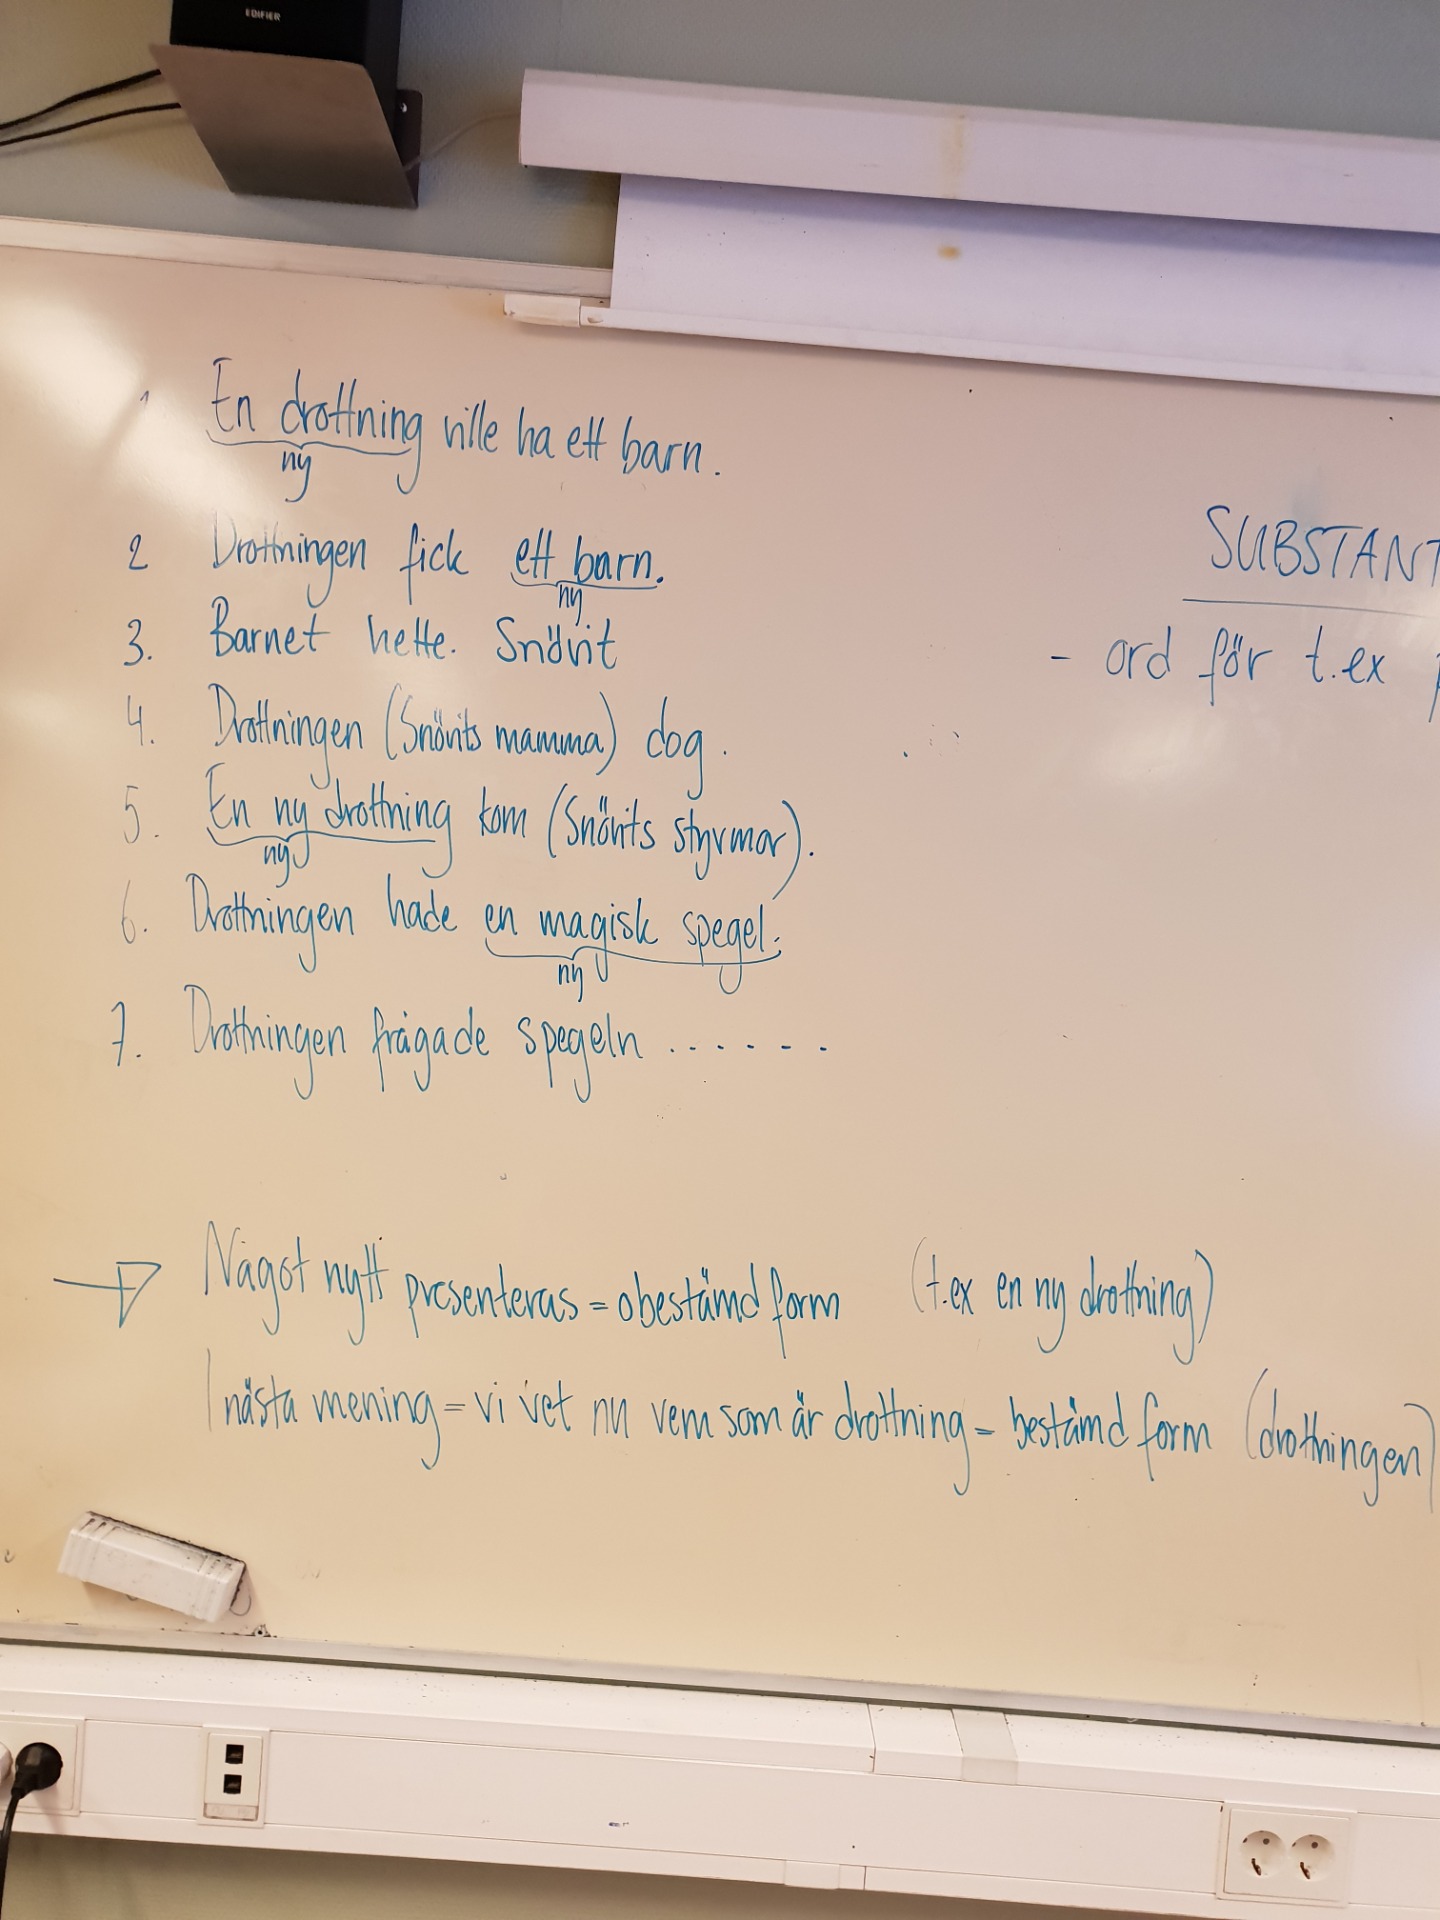 EDIFIER
1 En drottning ville ha ett barn.
ny
2 Drottningen fick ett barn.
ny
3. Barnet hette. Snövit
4. Drottningen (Snövits mamma) dog.
5. En ny drottning kom (Snövits styvmor).
ny
6. Drottningen hade en magisk spegel.
ny
7. Drottningen frågade spegeln ......
Något nytt presenteras = obestämd form (t.ex en ny drottning)
I nästa mening = vi vet nu vem som är drottning = bestämd form (drottningen)
SUBSTANT
- ord för t.ex